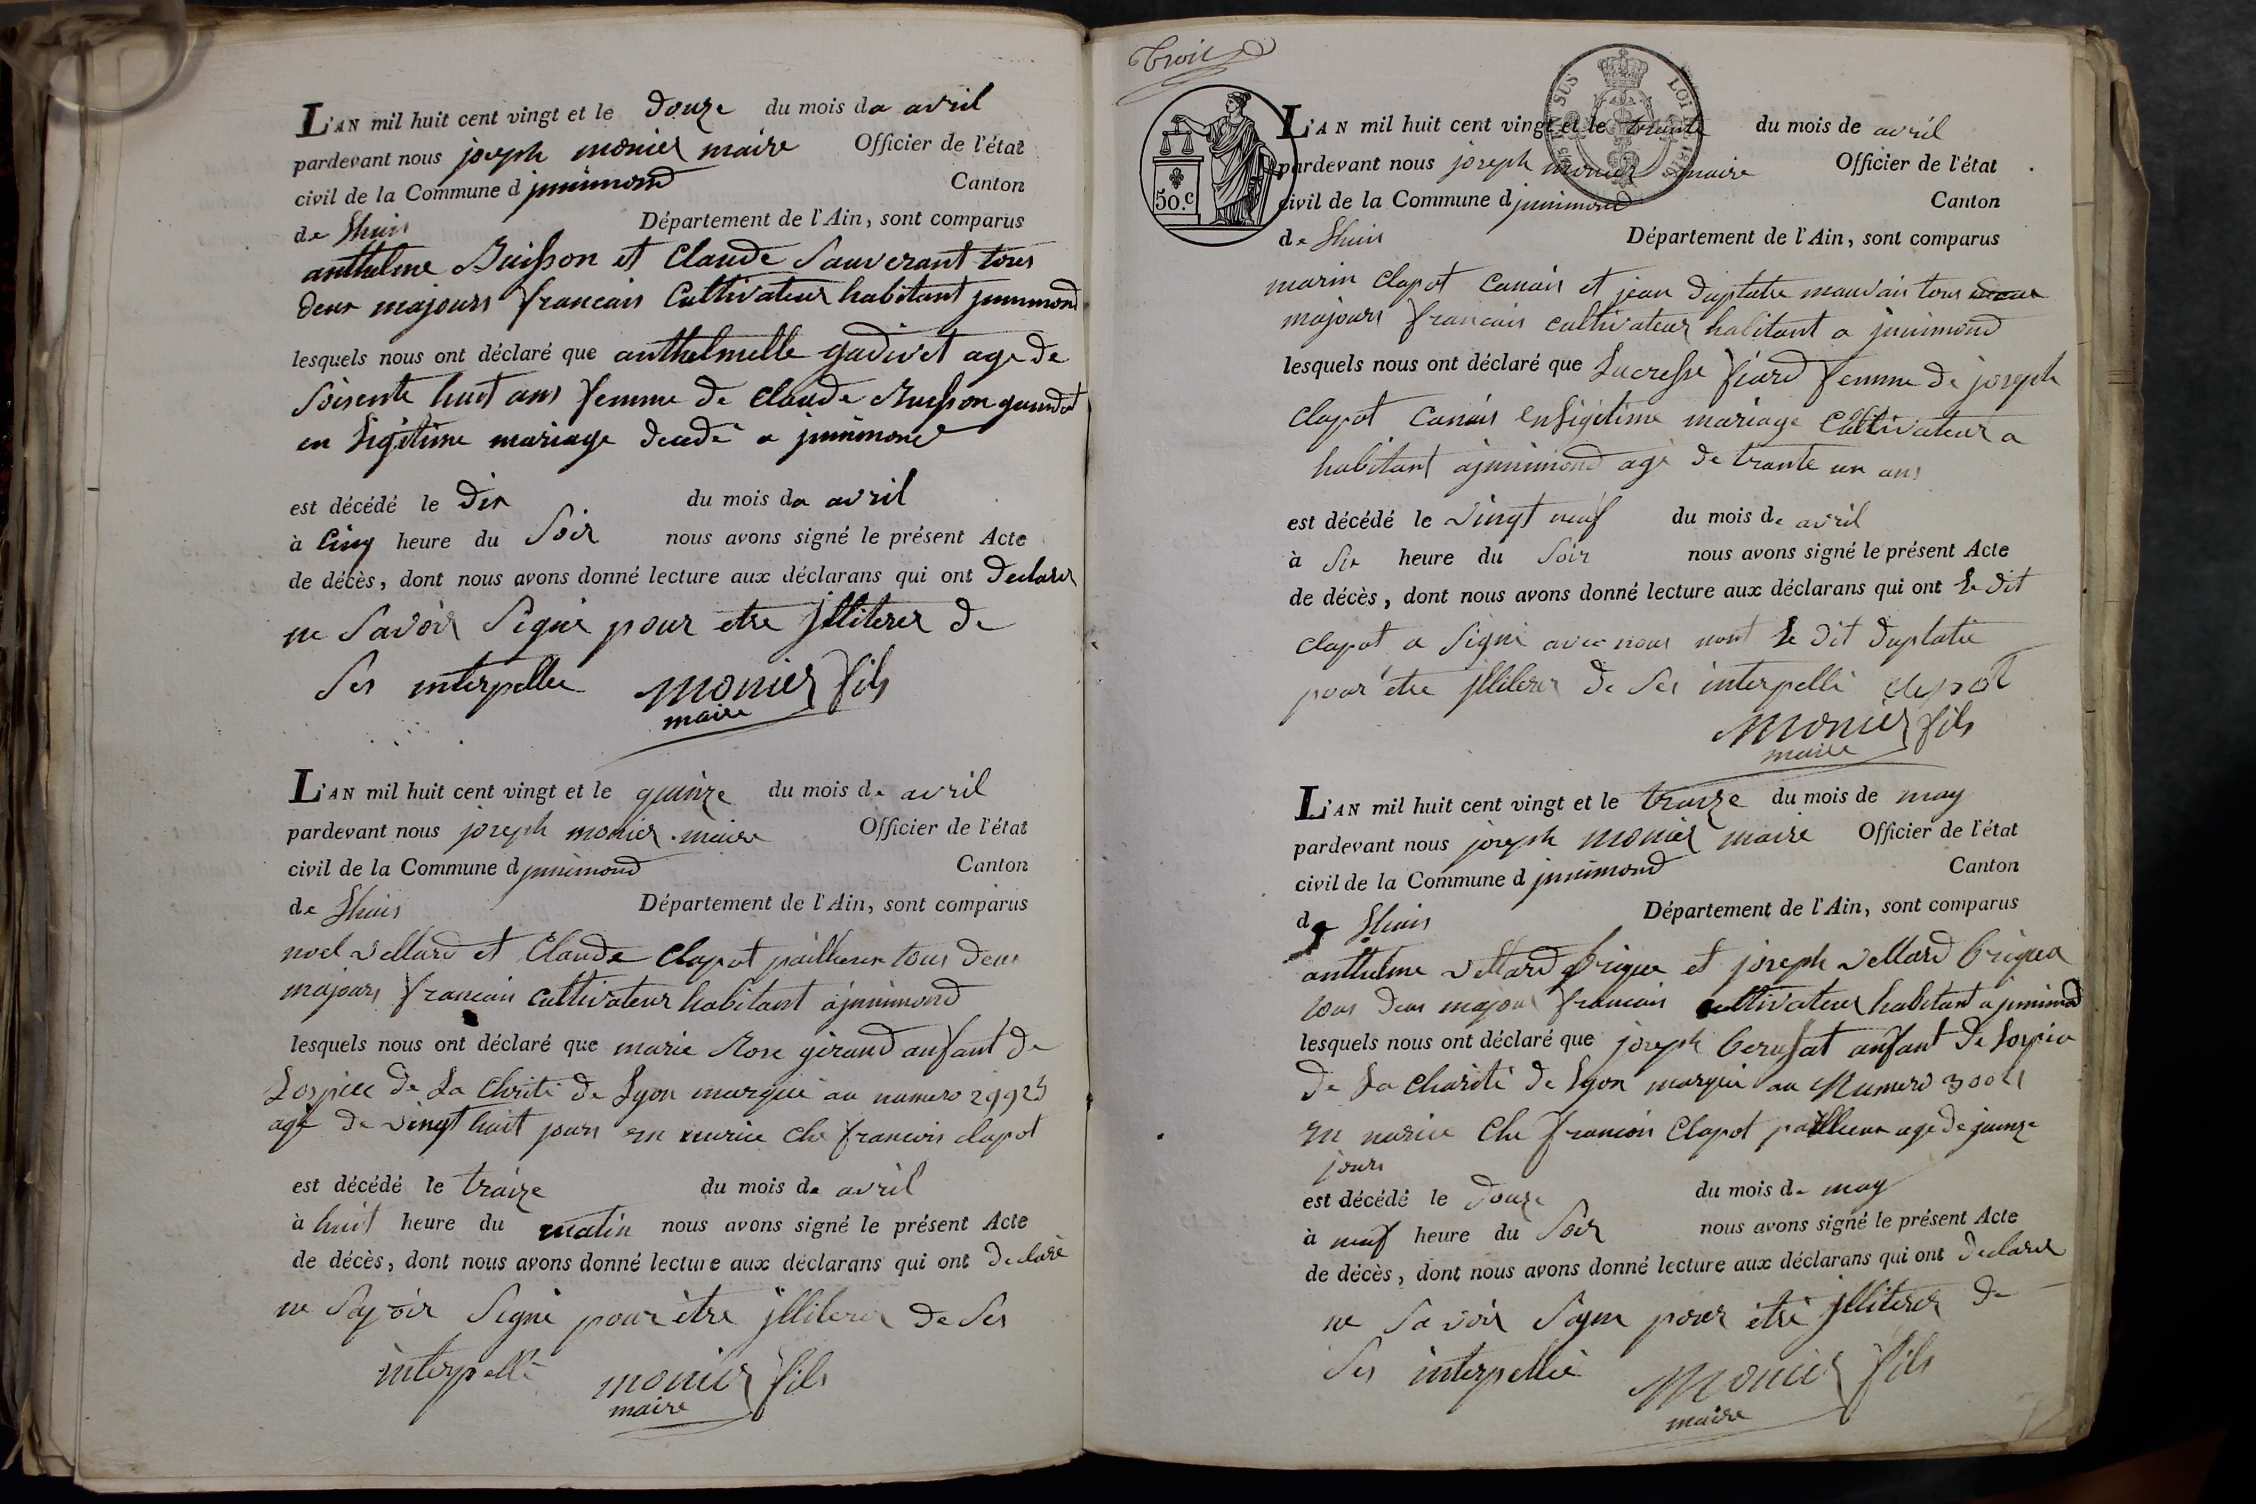 L'AN mil huit cent vingt et le douze du mois da avril
pardevant nous joseph monier maire Officier de l'état
civil de la Commune d jnnimond Canton
de Lhuis Département de l'Ain, sont comparus
anthelme Buisson et Claude Sauverant tous
deux majours francais Cultivateur habitant jnnimond
lesquels nous ont déclaré que anthelmelle gadivet age de
Soisente huit ans femme de Claude Buisson
en Légitime mariage decedé a jnnimond
est décédé le dix du mois da avril
à Cinq heure du Soir nous avons signé le présent Acte
de décès, dont nous avons donné lecture aux déclarans qui ont declarer
ne Savoir Signé pour etre jlliterer de
Ses interpellee monier fils
maire
L'AN mil huit cent vingt et le quinze du mois de avril
pardevant nous joseph monier maire Officier de l'état
civil de la Commune d jnnimond Canton
de Lhuis Département de l'Ain, sont comparus
noel vellard et Claude Clapot paillieux tous deux
majours francais cultivateur habitant a jnnimond
lesquels nous ont déclaré que marie Rose giraud anfant de
Lospice de La Chrité de Lyon marqué au numero
agé de vingt huit jours en nurice che francois clapot
est décédé le traize du mois de avril
à huit heure du matin nous avons signé le présent Acte
de décès, dont nous avons donné lecture aux déclarans qui ont declaré
ne Savoir Signé pour être jlliterer de Ses
interpellé monier fils
maire
Trois
TIMBRE SUS LOI DE 1816
50.c
L'AN mil huit cent vingt et le trante du mois de avril
pardevant nous joseph monier maire Officier de l'état
civil de la Commune d jnnimond Canton
de Lhuis Département de l'Ain, sont comparus
marin clapot canais et jean duplatre mauvais tous
majours francais cultivateur habitant a jnnimond
lesquels nous ont déclaré que Lucresse fiard femme de joseph
Clapot canais en Ligitime mariage Cultivateur a
habitant a jnnimond agé de trante un ans
est décédé le vingt neuf du mois de avril
à Six heure du Soir nous avons signé le présent Acte
de décès, dont nous avons donné lecture aux déclarans qui ont Le dit
clapot a Signé avec nous nont Le dit duplatre
pour être jlliterer de Ses interpellé clapot
monier fils
maire
L'AN mil huit cent vingt et le traize du mois de may
pardevant nous joseph monier maire Officier de l'état
civil de la Commune d jnnimond Canton
de Lhuis Département de l'Ain, sont comparus
anthelme vettard briqua et joseph vettard briqua
tous deux majour francais cultivateur habitant a jnnimond
lesquels nous ont déclaré que joseph anfant de Lospice
de La Charité de Lyon marqué au Numero
en nurice Che francois Clapot paillieux age de quinze
jours
est décédé le douze du mois de may
à neuf heure du Soir nous avons signé le présent Acte
de décès, dont nous avons donné lecture aux déclarans qui ont declarer
ne Savoir Signe pour etre jlliterer de
Ses interpellée monier fils
maire